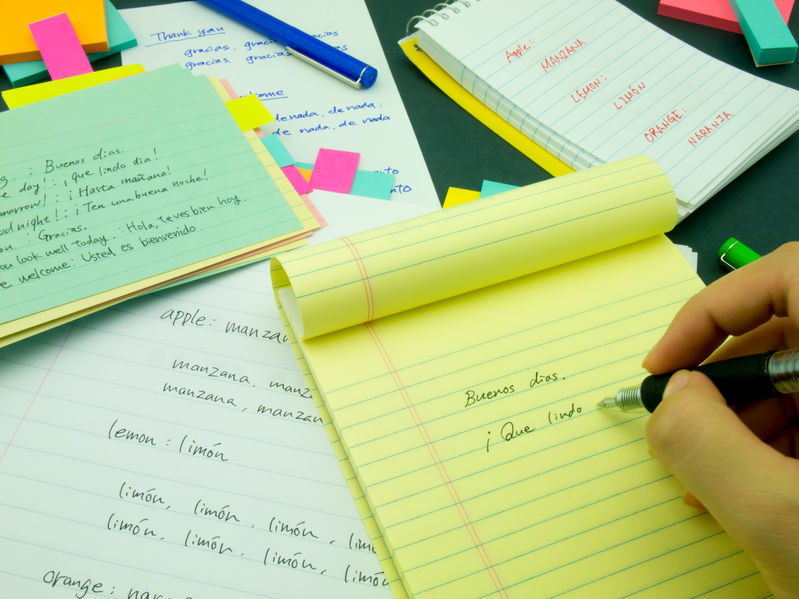 Thank you
gracias, gracias, gracias
gracias, gracias
denada, de nada,
de nada, de nada
Apple:
MANZANA
LEMON:
LIMÓN
ORANGE:
NARANJA
: Buenos dias.
day! : ¡que lindo dia!
: ¡Hasta mañana!
night! : ¡Ten una buena noche!
: Gracias.
look well today. : Hola, te ves bien hoy.
welcome: Usted es bienvenido.
apple: manzan
manzana, manz
manzana, manzan
lemon : limón
limón, limón, limón, lim
limón, limón, limón, limó
orange: nar
Buenos dias.
¡Que lindo